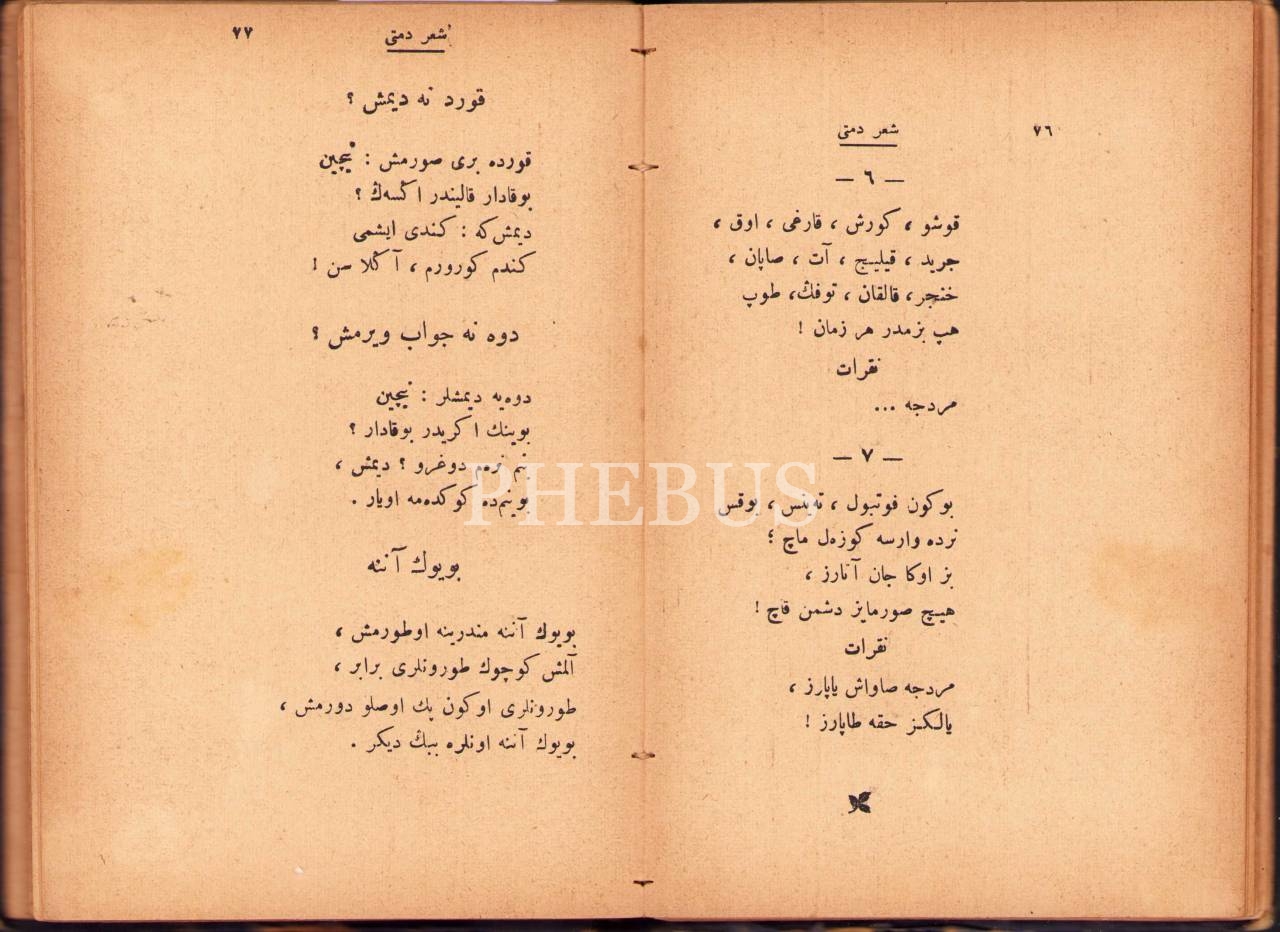 ٧٦
شعر دمتی
— ٦ —
قوشو ، كورش ، قارغی ، اوق ،
جريد ، قيليج ، آت ، صاپان ،
خنجر ، قالقان ، توفڭ ، طوپ
هپ بزمدر هر زمان !
نقرات
مردجه ...
— ٧ —
بوكون فوتبول ، تەنس ، بوقس
نرده وارسه كوزەل ماچ ؛
بز اوكا جان آتارز ،
هيچ صورمايز دشمن قاچ !
نقرات
مردجه صاواش ياپارز ،
يالكز حقه طاپارز !
شعر دمتی
٧٧
قورد نه ديمش ؟
قورده بری صورمش : نيچين
بوقادار قاليندر اڭسەڭ ؟
ديمش كه : كندی ايشمی
كندم كورورم ، آڭلا سن !
دوه نه جواب ويرمش ؟
دوه‌يه ديمشلر : نيچين
بوينك اكريدر بوقادار ؟
نم نره‌م دوغرو ؟ ديمش ،
بوينم‌ده كوكده‌مه اويار .
بويوك آننه
بويوك آننه مندرينه اوطورمش ،
آلمش كوچوك طورونلری برابر ،
طورونلری اوكون پك اوصلو دورمش ،
بويوك آننه اونلره ببك ديكر .
PHEBUS